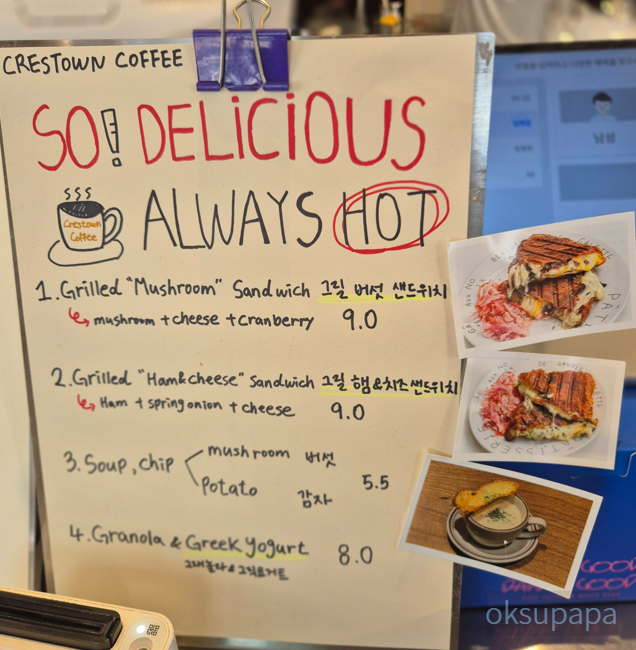 CRESTOWN COFFEE
SO! DELICIOUS
ALWAYS HOT
Crestown
Coffee
1. Grilled "Mushroom" Sandwich 그릴 버섯 샌드위치
mushroom + cheese + cranberry 9.0
2. Grilled "Ham&cheese" sandwich 그릴 햄&치즈샌드위치
Ham + spring onion + cheese 9.0
3. Soup, chip
mushroom 버섯
Potato 감자
5.5
4. Granola & Greek Yogurt 8.0
그래놀라 & 그릭요거트
남성
GOOD
GOOD
oksupapa